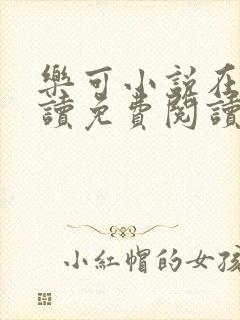 樂可小説在
讀免費閱讀
小紅帽的女孩